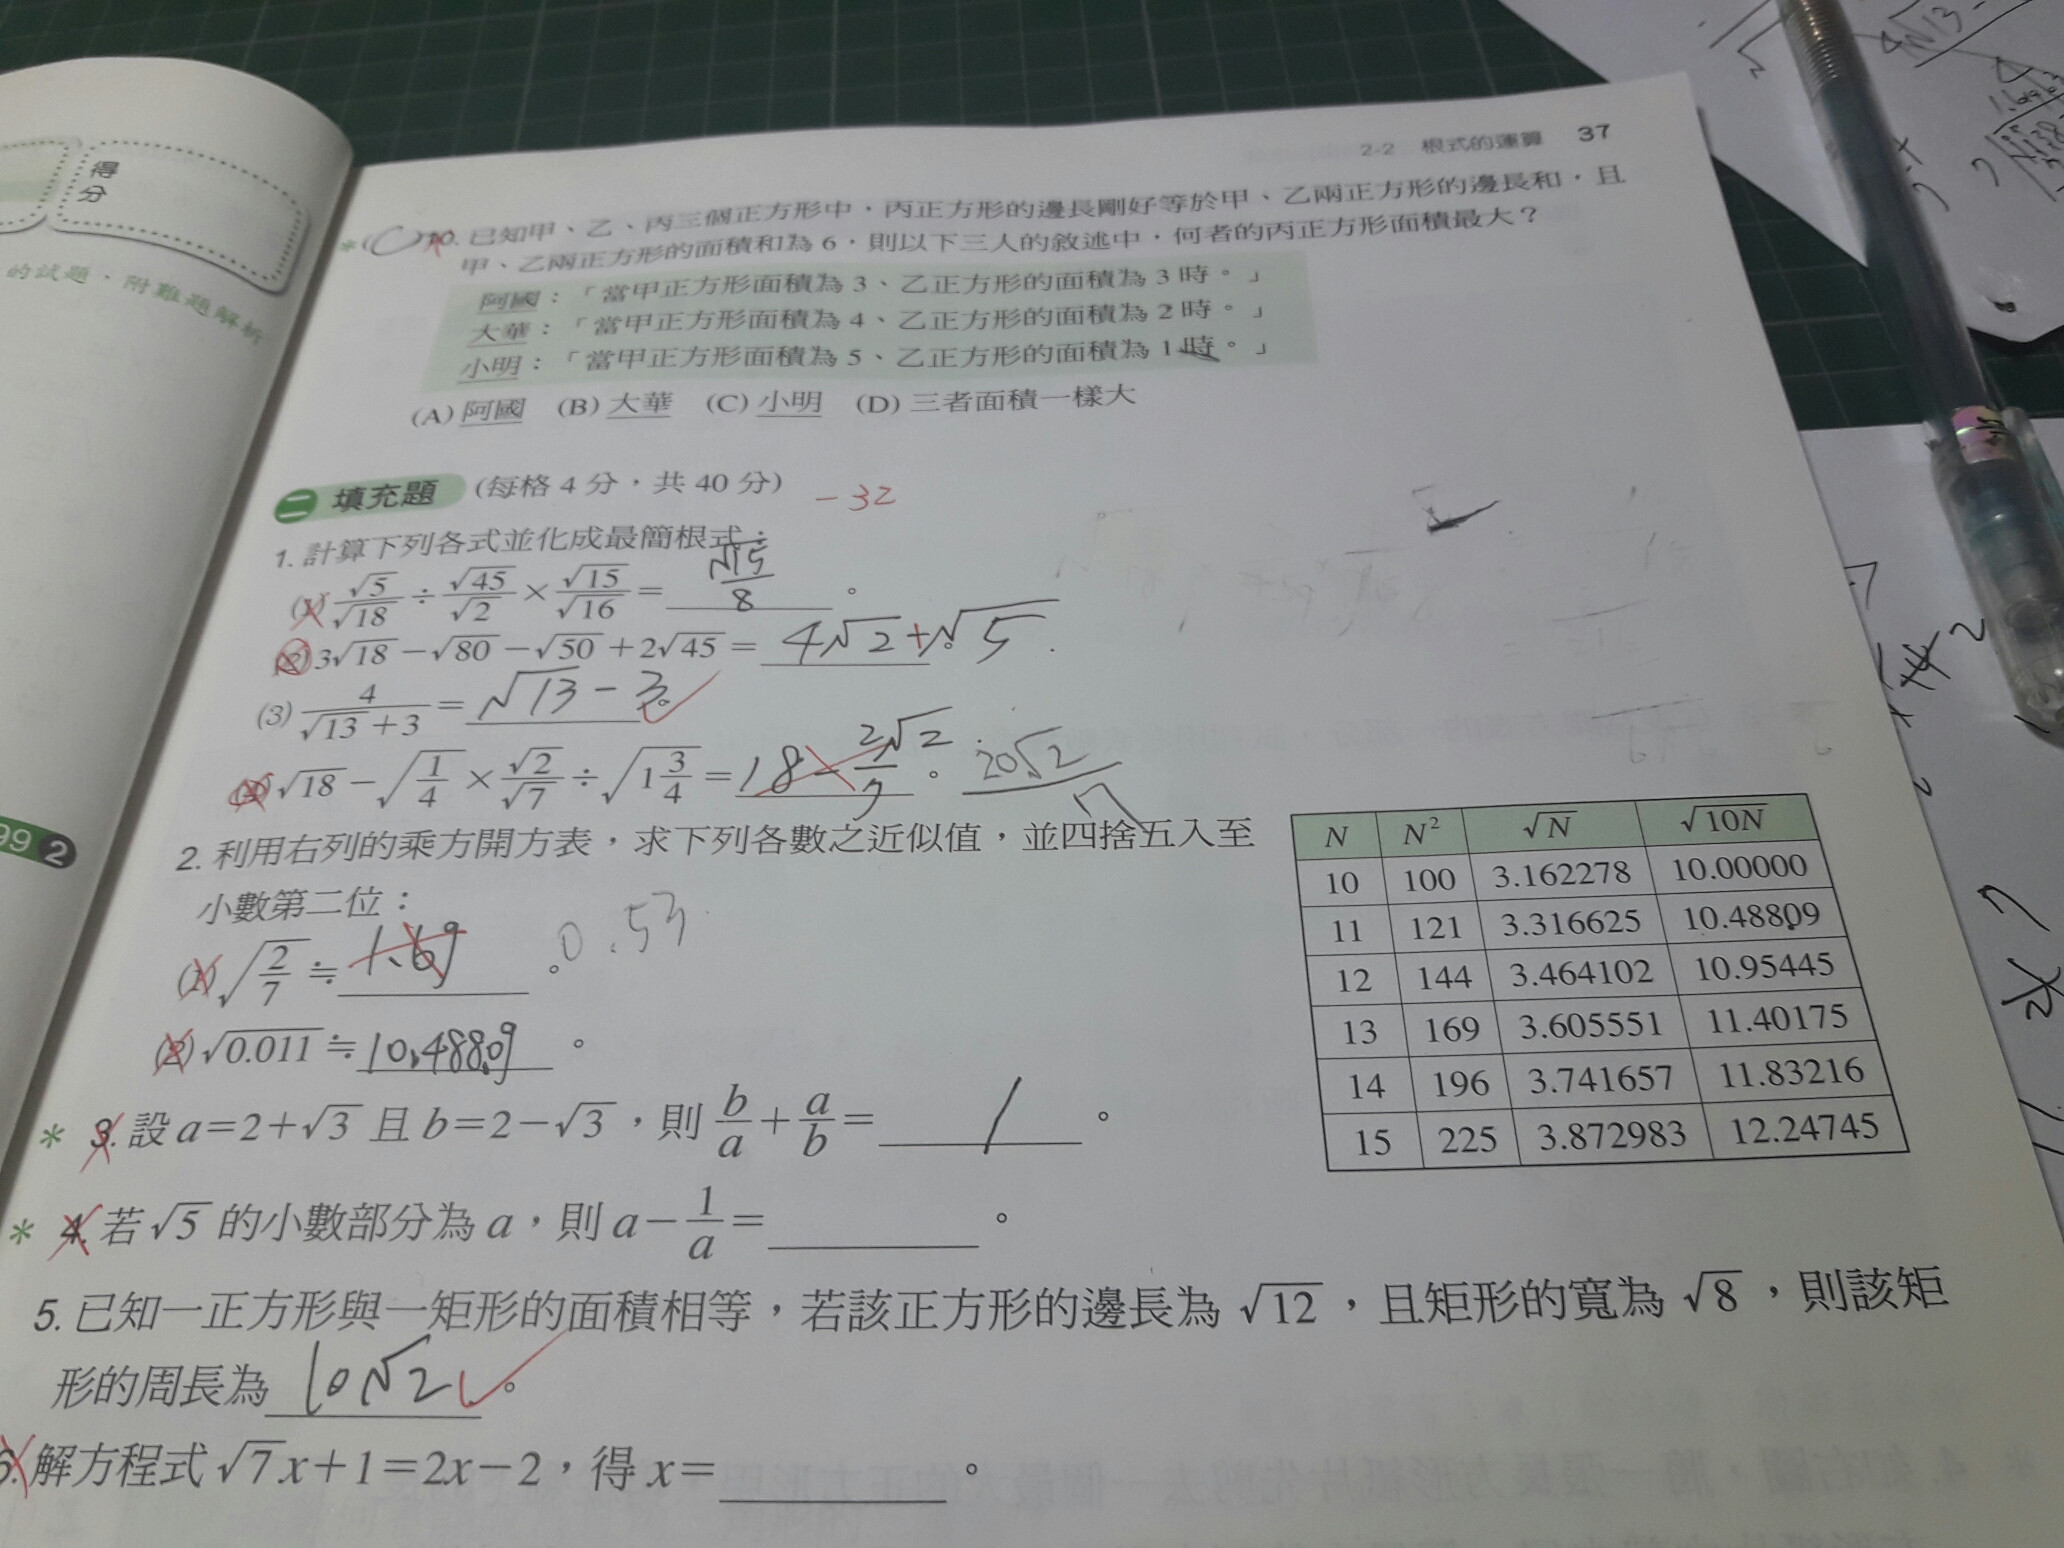 得
分
的試題、附難題解析
99 2
2-2 根式的運算 37
*( C )10. 已知甲、乙、丙三個正方形中，丙正方形的邊長剛好等於甲、乙兩正方形的邊長和，且
甲、乙兩正方形的面積和為 6，則以下三人的敘述中，何者的丙正方形面積最大？
阿國：「當甲正方形面積為 3、乙正方形的面積為 3 時。」
大華：「當甲正方形面積為 4、乙正方形的面積為 2 時。」
小明：「當甲正方形面積為 5、乙正方形的面積為 1 時。」
(A) 阿國 (B) 大華 (C) 小明 (D) 三者面積一樣大
二 填充題 (每格 4 分，共 40 分) -32
1. 計算下列各式並化成最簡根式：
(1) √5/√18 ÷ √45/√2 × √15/√16 = √15/8 。
(2) 3√18 − √80 − √50 + 2√45 = 4√2+√5 。
(3) 4/(√13+3) = √13 − 3 。
(4) √18 − √(1/4) × √2/√7 ÷ √(1 3/4) = 18 − 2√2/7 。 20√2/7
2. 利用右列的乘方開方表，求下列各數之近似值，並四捨五入至
小數第二位：
(1) √(2/7) ≒ 1.69 。 0.53
(2) √0.011 ≒ 10.48809 。
N N² √N √10N
10 100 3.162278 10.00000
11 121 3.316625 10.48809
12 144 3.464102 10.95445
13 169 3.605551 11.40175
14 196 3.741657 11.83216
15 225 3.872983 12.24745
* 3. 設 a=2+√3 且 b=2−√3，則 b/a + a/b = / 。
* 4. 若 √5 的小數部分為 a，則 a − 1/a = 。
5. 已知一正方形與一矩形的面積相等，若該正方形的邊長為 √12，且矩形的寬為 √8，則該矩
形的周長為 10√2 。
6. 解方程式 √7x+1=2x−2，得 x= 。